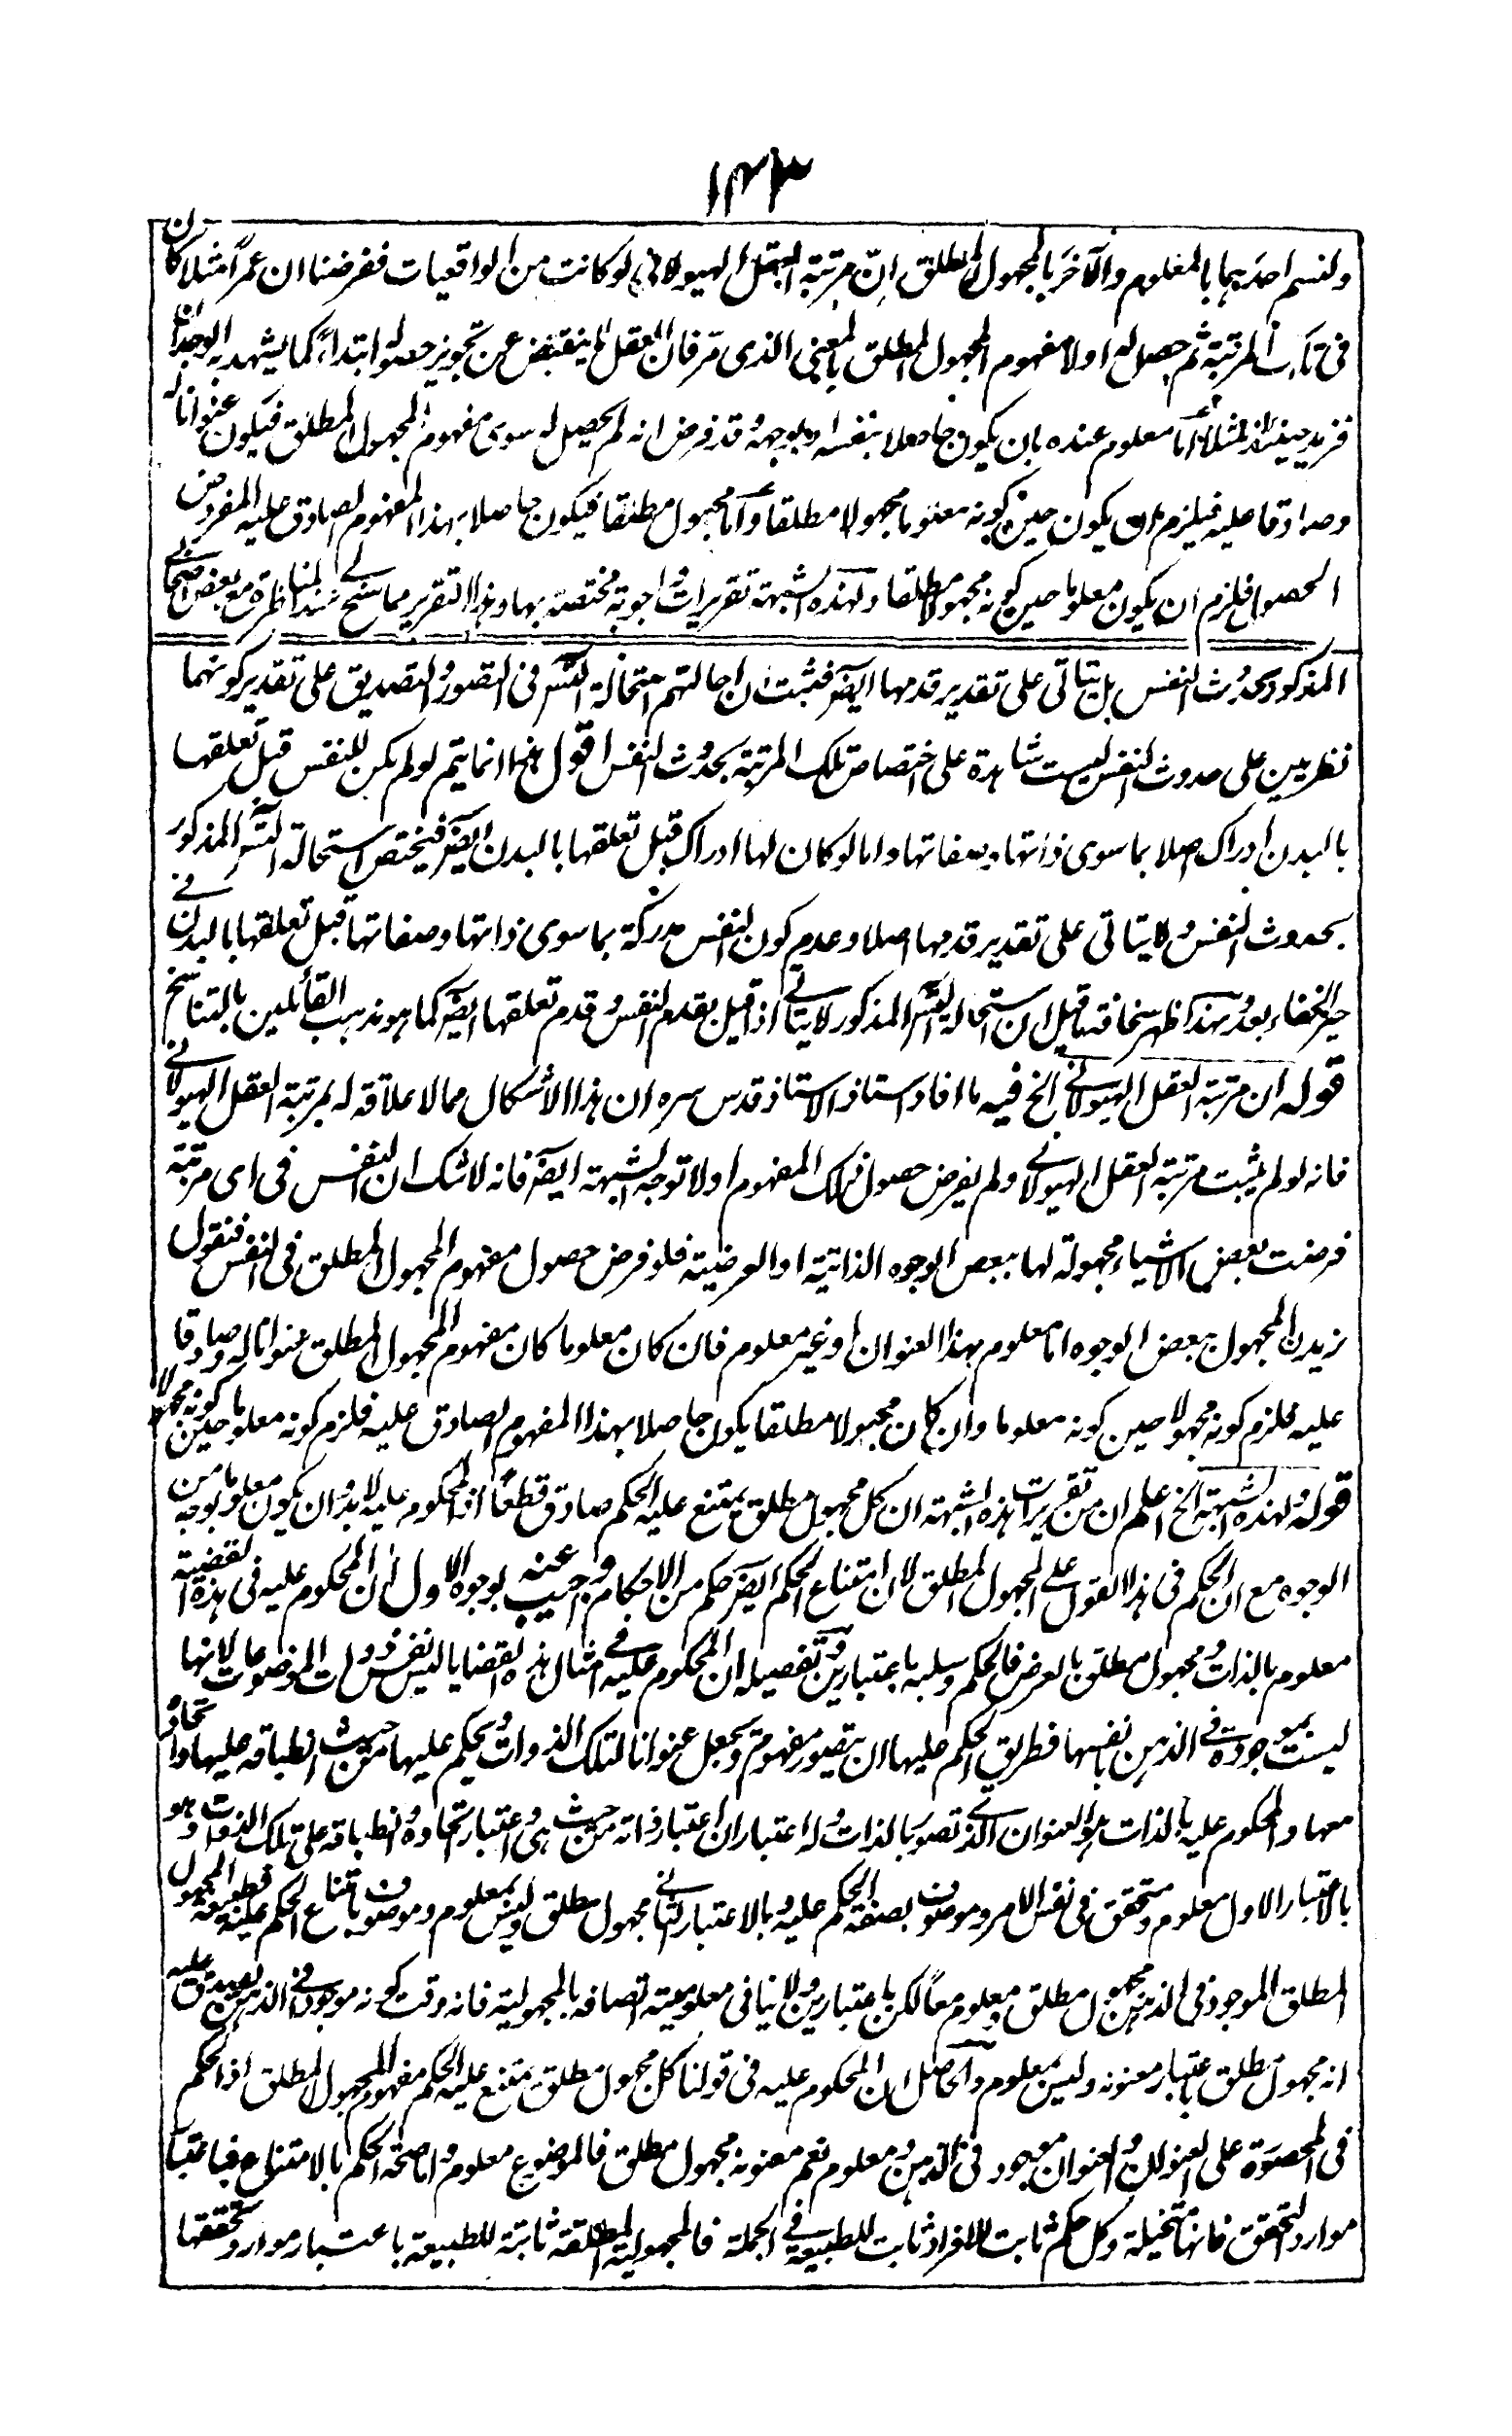 ١٤٣
ولنسم احدهما بالمعلوم والآخر بالمجهول المطلق ان مرتبة العقل الهيولاني لو كانت من الواقعيات ففرضنا ان عمرًا مثلا كان
في تلك المرتبة ثم حصل له اولا مفهوم المجهول المطلق بالمعنى الذي مر فان العقل لا ينقبض عن تجويز حصوله ابتداءً كما يشهد به الوجدان
فزيد حينئذ مثلا اما معلوم عنده بان يكون حاصلا بنفسه او بوجهه وقد فرض انه لم يحصل له سوى مفهوم المجهول المطلق فيكون عنوانا له
وصادقا عليه فيلزم ان يكون حين كونه معلوما مجهولا مطلقا واما مجهول مطلقا فيكون حاصلا بهذا المفهوم الصادق عليه المفروض
الحصول فلزم ان يكون معلوما حين كونه مجهولا مطلقا ولهذه الشبهة تقريرات واجوبة مختصة بها وهذا التقرير مما سنح لي عند المناظرة مع بعض اصحابي
المذكور بحدوث النفس بل يتاتى على تقدير قدمها ايضا فثبت ان احالتهم استحالة التس في التصور والتصديق على تقدير كونهما
نظريين على حدوث النفس ليست شاهدة على اختصاص تلك المرتبة بحدوث النفس اقول هذا انما يتم لو لم يكن للنفس قبل تعلقها
بالبدن ادراك اصلا بما سوى ذاتها وصفاتها واما لو كان لها ادراك قبل تعلقها بالبدن ايضا فيختص استحالة التس المذكور
بحدوث النفس ولا يتاتى على تقدير قدمها اصلا وعدم كون النفس مدركة بما سوى ذاتها وصفاتها قبل تعلقها بالبدن في
حيز الخفاء بعد وبهذا ظهر سخافة ما قيل ان استحالة التس المذكور لا يتاتى اذا قيل بقدم النفس وقدم تعلقها ايضا كما هو مذهب القائلين بالتناسخ
قوله ان مرتبة العقل الهيولاني الخ فيه ما افاد استاذ الاستاذ قدس سره ان هذا الاشكال مما لا علاقة له بمرتبة العقل الهيولاني
فانه لو لم يثبت مرتبة العقل الهيولاني ولم يفرض حصول ذلك المفهوم اولا توجه الشبهة ايضا فانه لا شك ان النفس في اى مرتبة
فرضت بعض الاشياء مجهولة لها ببعض الوجوه الذاتية او العرضية فلو فرض حصول مفهوم المجهول المطلق في النفس فنقول
زيدن المجهول ببعض الوجوه اما معلوم بهذا العنوان او غير معلوم فان كان معلوما كان مفهوم المجهول المطلق عنوانا له وصادقا
عليه فلزم كونه مجهولا حين كونه معلوما وان كان مجهولا مطلقا يكون حاصلا بهذا المفهوم الصادق عليه فلزم كونه معلوما حين كونه مجهولا
قوله ولهذه الشبهة الخ اعلم ان من تقريرات هذه الشبهة ان كل مجهول مطلق يمتنع عليه الحكم صادق قطعًا اذ المحكوم عليه لا بد ان يكون معلوما بوجه من
الوجوه مع ان الحكم في هذا القول على المجهول المطلق لان امتناع الحكم ايضا حكم من الاحكام واجيب عنه بوجوه الاول ان المحكوم عليه في هذه القضية
معلوم بالذات ومجهول مطلق بالعرض فالحكم وسلبه باعتبارين وتفصيله ان المحكوم عليه في امثال هذه القضايا ليس نفس ذوات الموضوعات لانها
ليست بموجودة في الذهن بانفسها فطريق الحكم عليها ان يتصور مفهوم ويجعل عنوانا لتلك الذوات ويحكم عليها من حيث انطباقه عليها واتحاده
معها والمحكوم عليه بالذات هو العنوان الذي تصور بالذات وله اعتباران اعتبار ذاته من حيث هي واعتبار اتحاده وانطباقه على تلك الذوات وهو
بالاعتبار الاول معلوم ومتحقق في نفس الامر وموصوف بصفة الحكم عليه وبالاعتبار الثاني مجهول مطلق وليس بمعلوم وموصوف بامتناع الحكم عليه فطبيعة المجهول
المطلق الموجود في الذهن مجهول مطلق ومعلوم معًا لكن باعتبارين ولا ينافي معلوميته اتصافه بالمجهولية فانه وقت كونه موجودا في الذهن يصدق عليه
انه مجهول مطلق باعتبار معنونه وليس بمعلوم والحاصل ان المحكوم عليه في قولنا كل مجهول مطلق يمتنع عليه الحكم مفهوم المجهول المطلق اذ الحكم
في المحصورة على العنوان والعنوان موجود في الذهن ومعلوم نعم معنونه مجهول مطلق فالموضوع معلوم واما صحة الحكم بالامتناع فباعتبار
موارد التحقق فانها متخيلة وكل حكم ثابت للافراد ثابت للطبيعة في الجملة فالمجهولية المطلقة ثابتة للطبيعة باعتبار موارد تحققها